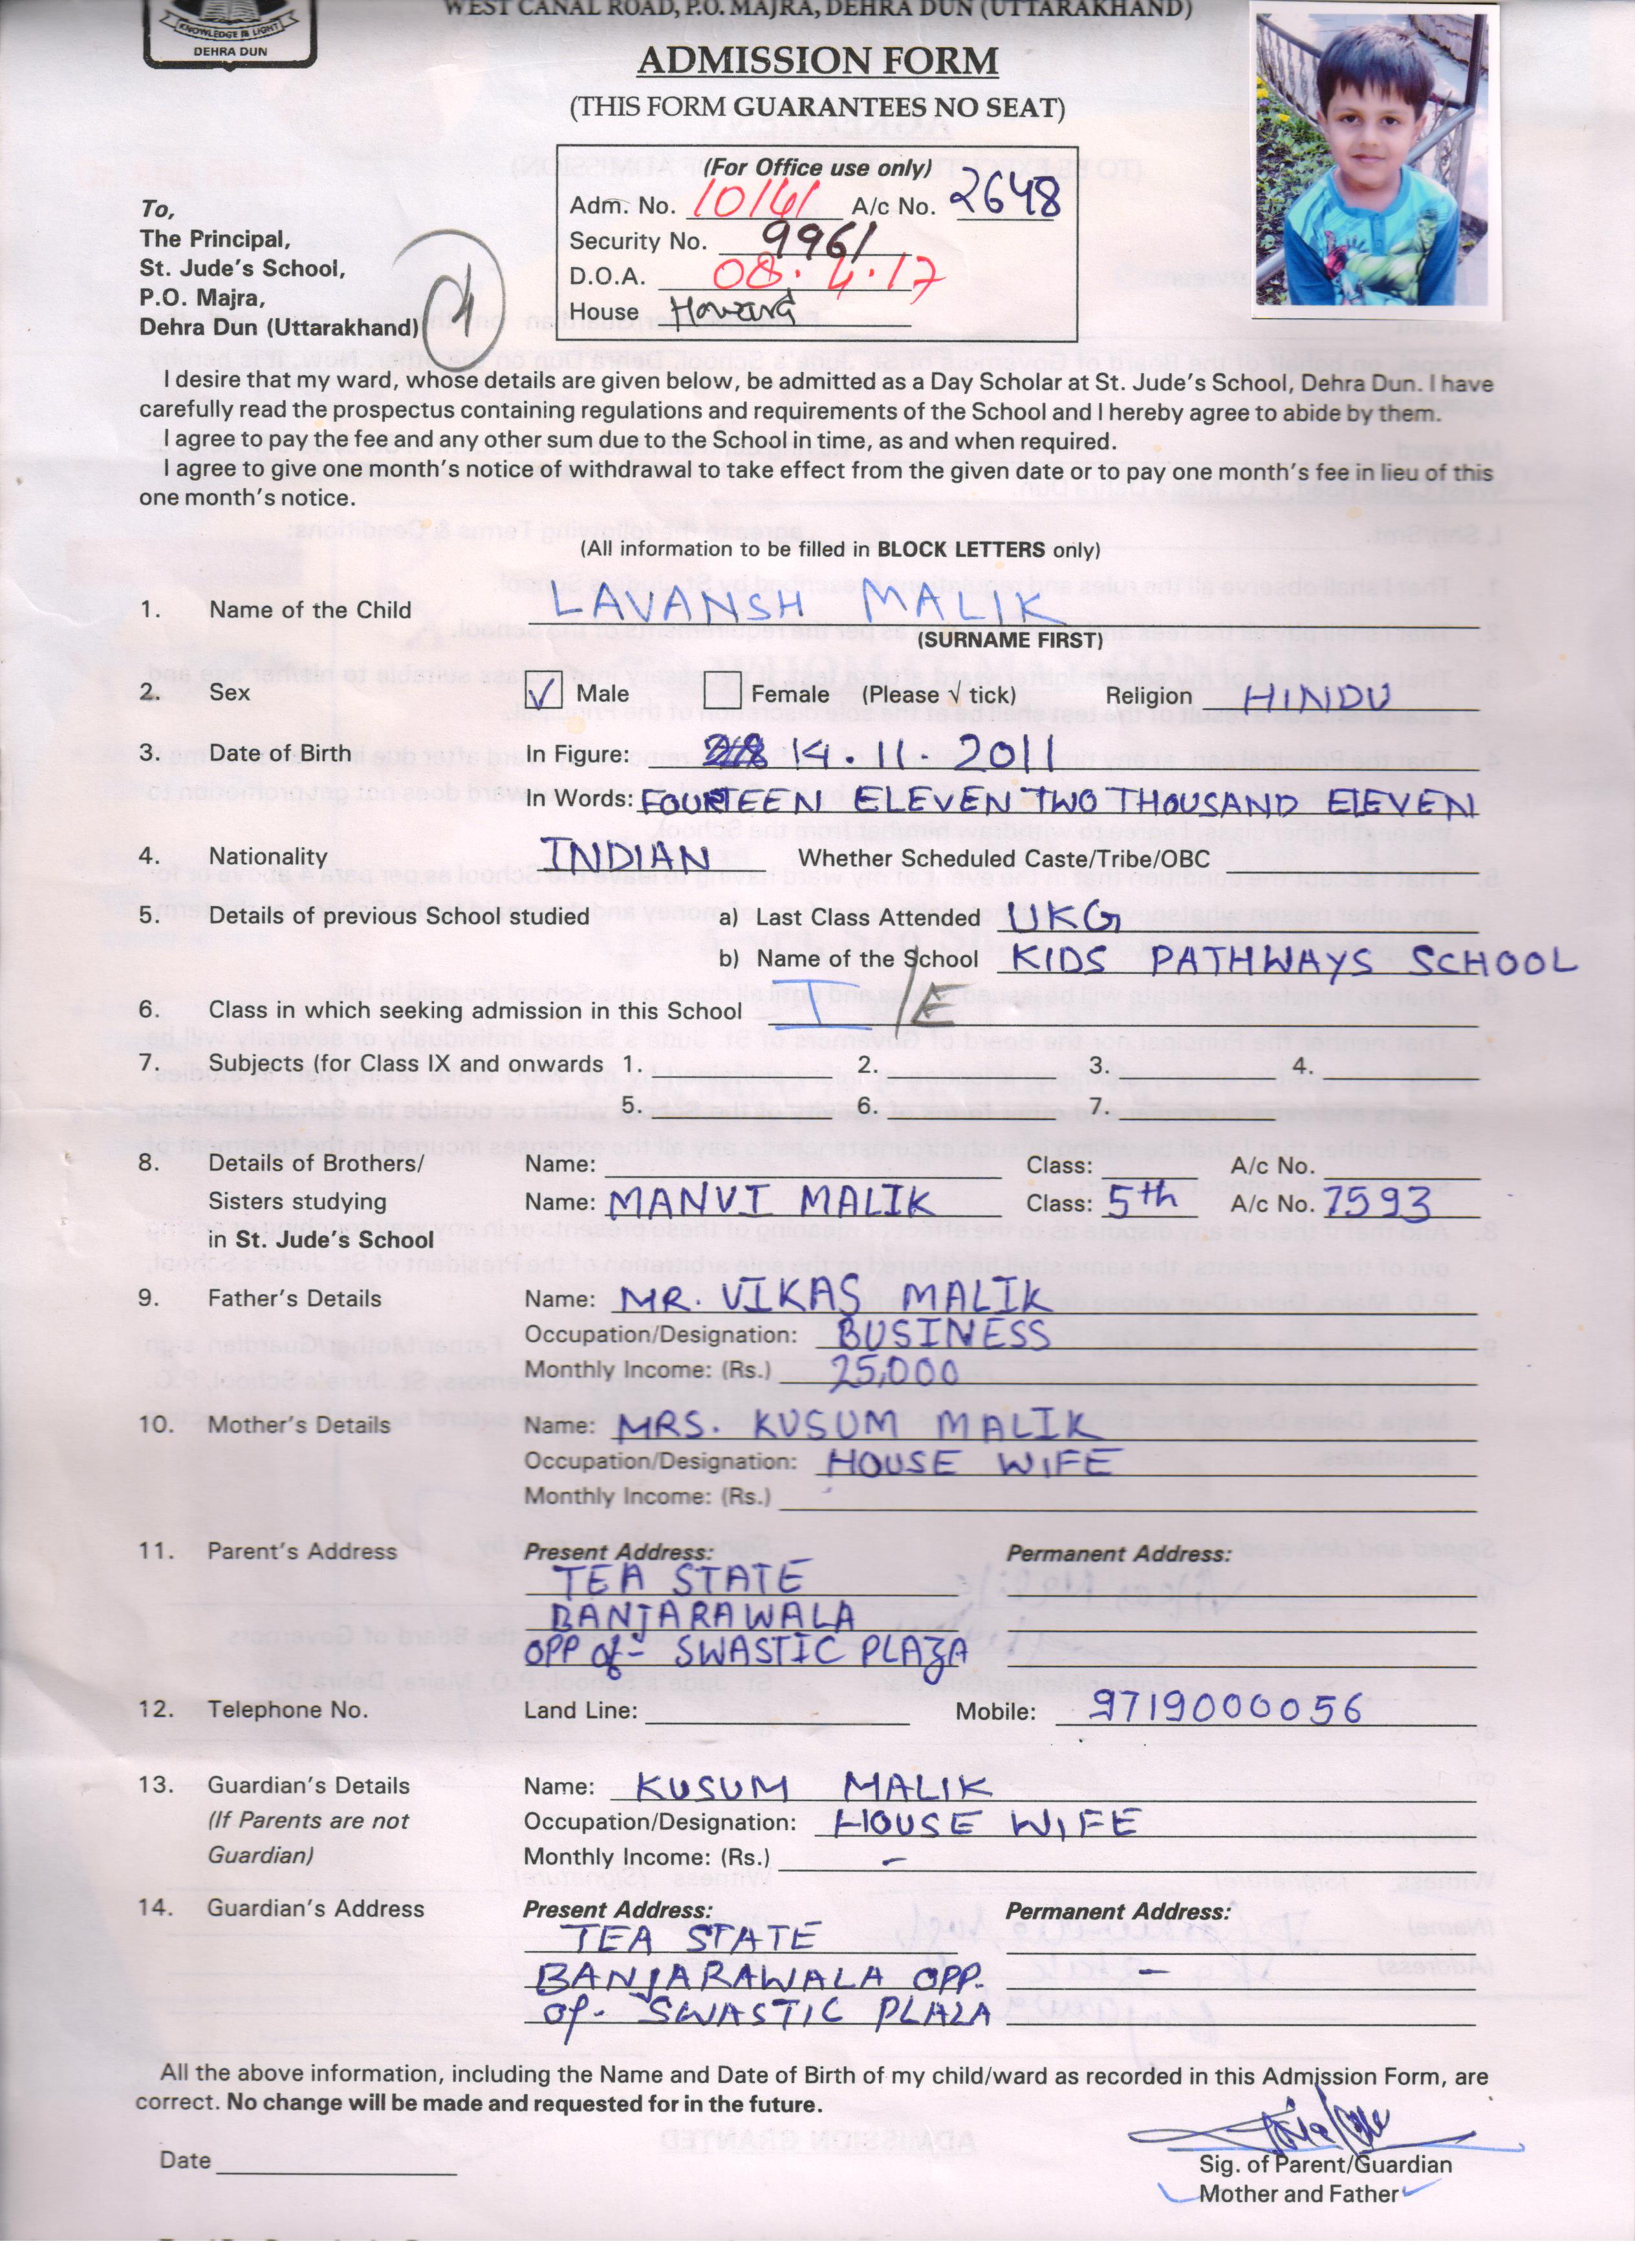 WEST CANAL ROAD, P.O. MAJRA, DEHRA DUN (UTTARAKHAND)
KNOWLEDGE IS LIGHT
DEHRA DUN
ADMISSION FORM
(THIS FORM GUARANTEES NO SEAT)
(For Office use only)
Adm. No. 10161 A/c No. 2648
Security No. 9961
D.O.A. 08.4.17
House Howard
To,
The Principal,
St. Jude's School,
P.O. Majra,
Dehra Dun (Uttarakhand)
I desire that my ward, whose details are given below, be admitted as a Day Scholar at St. Jude's School, Dehra Dun. I have
carefully read the prospectus containing regulations and requirements of the School and I hereby agree to abide by them.
I agree to pay the fee and any other sum due to the School in time, as and when required.
I agree to give one month's notice of withdrawal to take effect from the given date or to pay one month's fee in lieu of this
one month's notice.
(All information to be filled in BLOCK LETTERS only)
1. Name of the Child LAVANSH MALIK
(SURNAME FIRST)
2. Sex √ Male Female (Please √ tick) Religion HINDU
3. Date of Birth In Figure: 14.11.2011
In Words: FOURTEEN ELEVEN TWO THOUSAND ELEVEN
4. Nationality INDIAN Whether Scheduled Caste/Tribe/OBC
5. Details of previous School studied a) Last Class Attended UKG
b) Name of the School KIDS PATHWAYS SCHOOL
6. Class in which seeking admission in this School I/E
7. Subjects (for Class IX and onwards 1. 2. 3. 4.
5. 6. 7.
8. Details of Brothers/ Name: Class: A/c No.
Sisters studying Name: MANVI MALIK Class: 5th A/c No. 7593
in St. Jude's School
9. Father's Details Name: MR. VIKAS MALIK
Occupation/Designation: BUSINESS
Monthly Income: (Rs.) 25,000
10. Mother's Details Name: MRS. KUSUM MALIK
Occupation/Designation: HOUSE WIFE
Monthly Income: (Rs.)
11. Parent's Address Present Address: Permanent Address:
TEA STATE
BANJARAWALA
OPP of- SWASTIC PLAZA
12. Telephone No. Land Line: Mobile: 9719000056
13. Guardian's Details Name: KUSUM MALIK
(If Parents are not Occupation/Designation: HOUSE WIFE
Guardian) Monthly Income: (Rs.) -
14. Guardian's Address Present Address: Permanent Address:
TEA STATE
BANJARAWALA OPP. -
of- SWASTIC PLAZA
All the above information, including the Name and Date of Birth of my child/ward as recorded in this Admission Form, are
correct. No change will be made and requested for in the future.
Date
Sig. of Parent/Guardian
Mother and Father